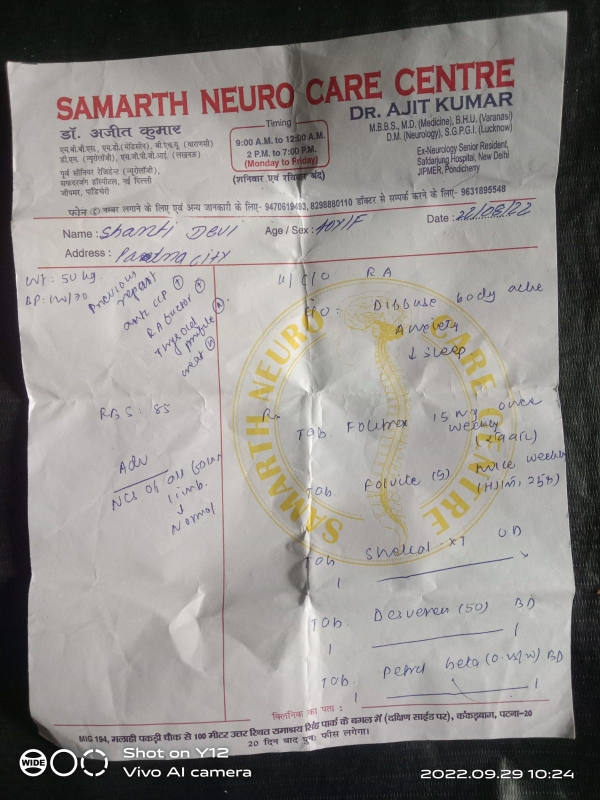 SAMARTH NEURO CARE CENTRE
डॉ. अजीत कुमार
एम.बी.बी.एस., एम.डी.(मेडिसीन), बी.एच.यू (वाराणसी)
डी.एम. (न्यूरोलॉजी), एस.जी.पी.जी.आई. (लखनऊ)
पूर्व सीनियर रेजिडेन्ट (न्यूरोलॉजी),
सफदरजंग हॉस्पीटल, नई दिल्ली
जीपमर, पांडिचेरी
Timing
9:00 A.M. to 12:00 A.M.
2 P.M. to 7:00 P.M.
(Monday to Friday)
(शनिवार एवं रविवार बंद)
DR. AJIT KUMAR
M.B.B.S., M.D. (Medicine), B.H.U. (Varanasi)
D.M. (Neurology), S.G.P.G.I. (Lucknow)
Ex-Neurology Senior Resident,
Safdarjung Hospital, New Delhi
JIPMER, Pondicherry
फोन नम्बर लगाने के लिए एवं अन्य जानकारी के लिए- 9470619493, 8298880110 डॉक्टर से सम्पर्क करने के लिए- 9631895548
Name : Shanti Devi Age / Sex : 40Y/F Date : 22/08/22
Address : Patna City
Wt: 50 kg.
BP:
Previous
report
anti CCP ↑
RA factor ↑
Thyroid
profile
RBS: 85
Adv
NCS of all four
limb.
↓
Normal
RA
C/O: Diffuse body ache
Anxiety
↓ Sleep
Rx
Tab. Folitrax 15 mg once
weekly
Tab Folvite (5) twice weekly
Tab Shelcal - XT OD
1
Tab. Desveren (50) BD
1 1
Tab. beta BD
1 1
SAMARTH NEURO CARE CENTRE
क्लिनिक का पता :
MIG 194, मलाही पकड़ी चौक से 100 मीटर उत्तर स्थित रामाश्रय सिंह पार्क के बगल में (दक्षिण साईड पर), कंकड़बाग, पटना-20
20 दिन बाद पुनः फीस लगेगा।
WIDE
Shot on Y12
Vivo AI camera
2022.09.29 10:24